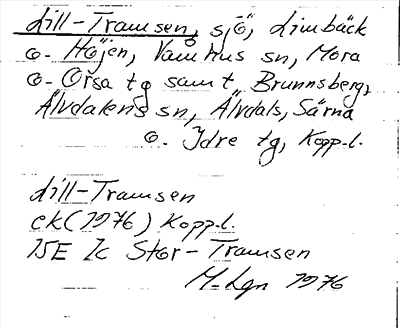 Lill-Tramsen, sjö, Limbäck
o. Höjen, Våmhus sn, Mora
o. Orsa tg samt Brunnsberg,
Älvdalens sn, Älvdals, Särna
o. Idre tg, Kopp.l.
Lill-Tramsen
ek (1976) Kopp.l.
15E 1c Stor-Tramsen
M-Lgn 1976